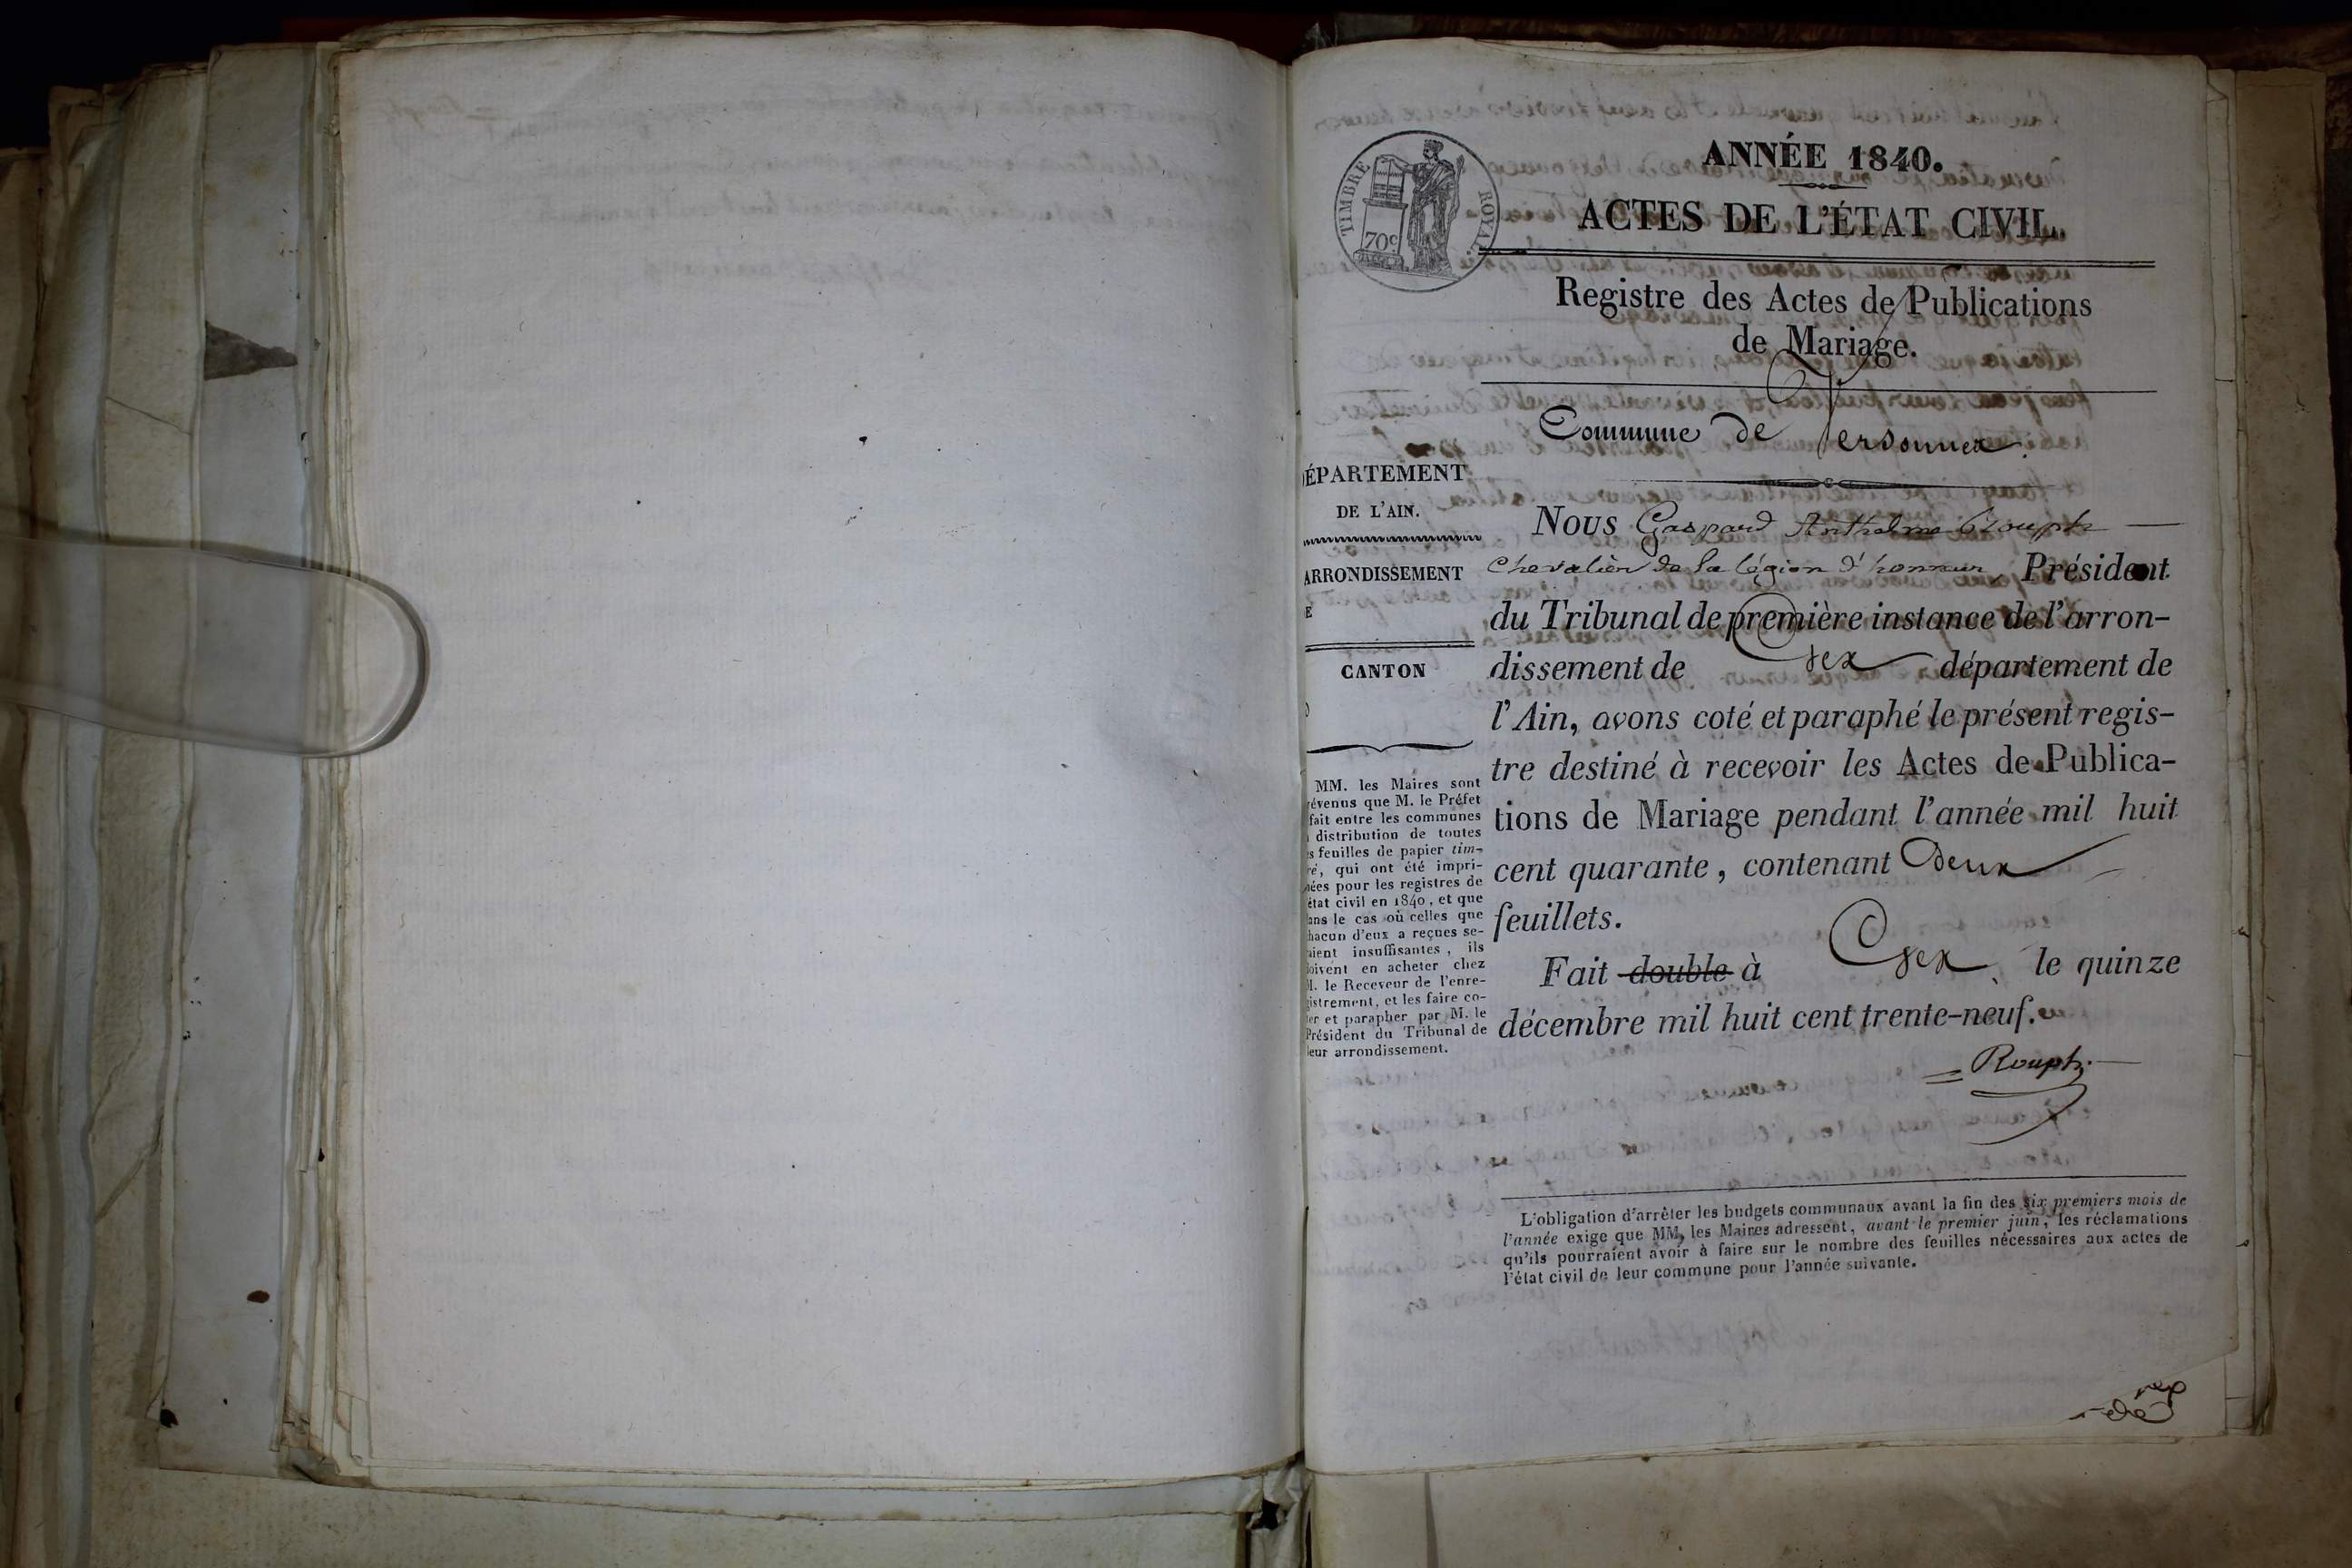 ANNÉE 1840.
ACTES DE L'ÉTAT CIVIL.
TIMBRE ROYAL
70c
Registre des Actes de Publications
de Mariage.
Commune de Versonnex.
ÉPARTEMENT
DE L'AIN.
ARRONDISSEMENT
E
CANTON
MM. les Maires sont
évenus que M. le Préfet
fait entre les communes
distribution de toutes
s feuilles de papier tim-
ré, qui ont été impri-
ées pour les registres de
état civil en 1840, et que
ans le cas où celles que
hacun d'eux a reçues se-
aient insuffisantes, ils
oivent en acheter chez
M. le Receveur de l'enre-
gistrement, et les faire co-
ter et parapher par M. le
Président du Tribunal de
leur arrondissement.
Nous Gaspard Anthelme Rouph
Chevalier de la légion d'honneur, Président
du Tribunal de première instance de l'arron-
dissement de Gex département de
l'Ain, avons coté et paraphé le présent regis-
tre destiné à recevoir les Actes de Publica-
tions de Mariage pendant l'année mil huit
cent quarante, contenant Deux
feuillets.
Fait double à Gex, le quinze
décembre mil huit cent trente-neuf.
Rouph.
L'obligation d'arrêter les budgets communaux avant la fin des six premiers mois de
l'année exige que MM. les Maires adressent, avant le premier juin, les réclamations
qu'ils pourraient avoir à faire sur le nombre des feuilles nécessaires aux actes de
l'état civil de leur commune pour l'année suivante.